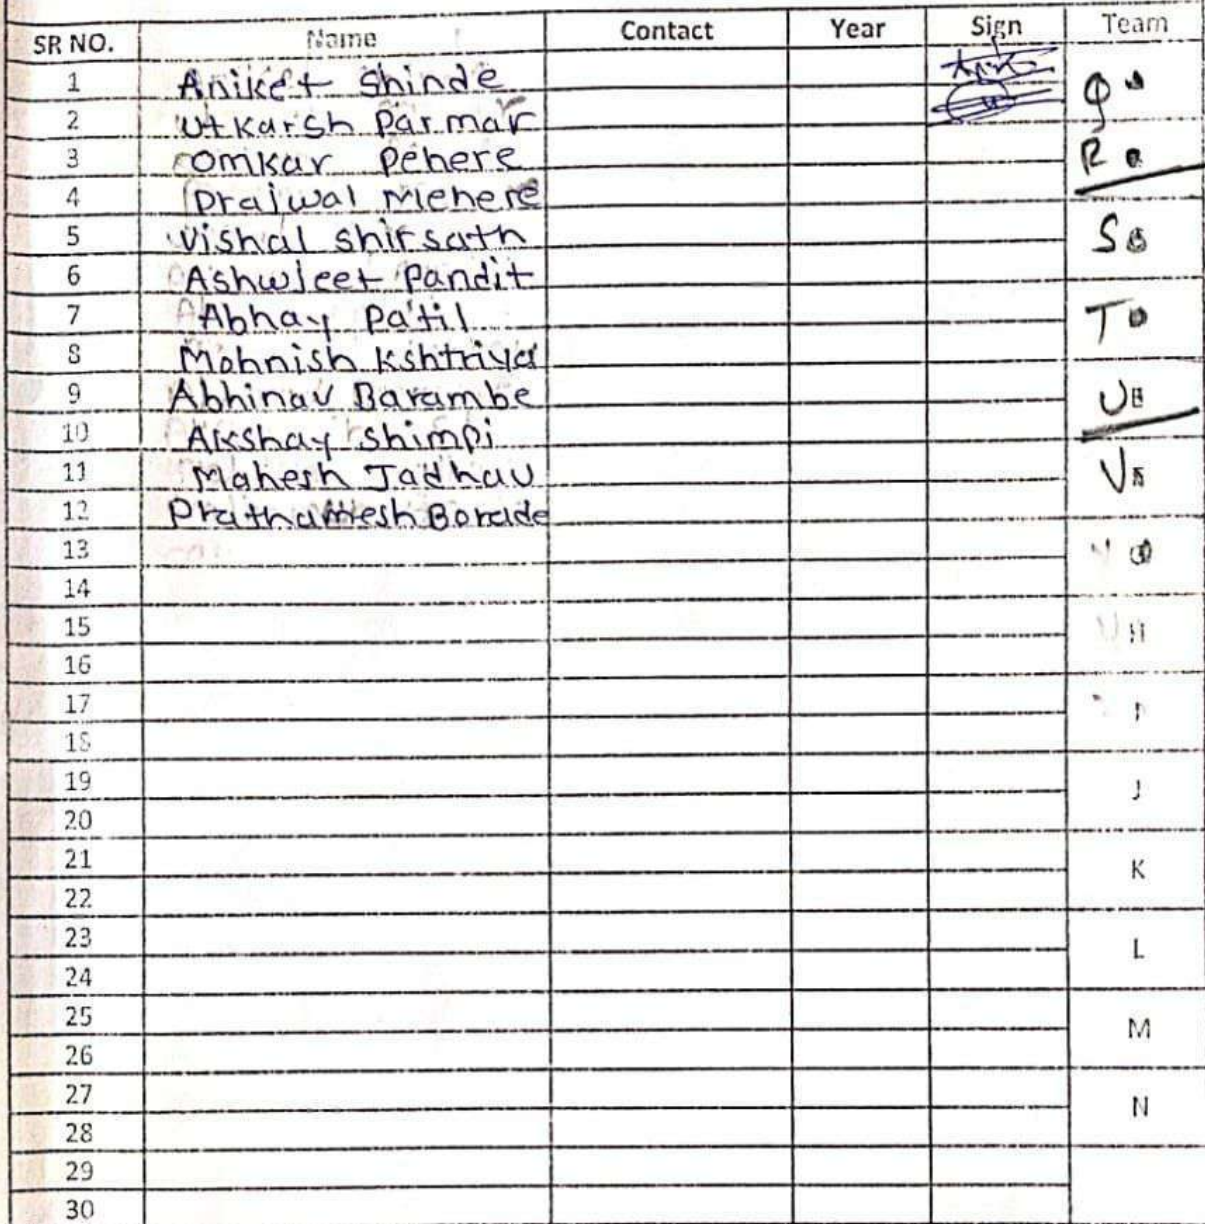 SR NO. Name Contact Year Sign Team
1 Aniket Shinde Q
2 Utkarsh Parmar
3 Omkar Pehere R
4 Prajwal Mehere
5 Vishal Shirsath S
6 Ashwjeet Pandit
7 Abhay Patil T
8 Mohnish Kshtriya
9 Abhinav Barambe U
10 Akshay Shimpi
11 Mahesh Jadhav V
12 Prathamesh Borade
13
14
15
16
17
18
19 J
20
21 K
22
23 L
24
25 M
26
27 N
28
29
30